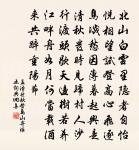 北山白雲裏隱者自怡
悅相望試登高心飛逐
鳥滅愁因薄暮起興是
清秋發時見歸村人沙
行渡頭歇天邊樹若薺
江畔舟如月何當載酒
來共醉重陽節
孟浩然秋登萬山寄張五